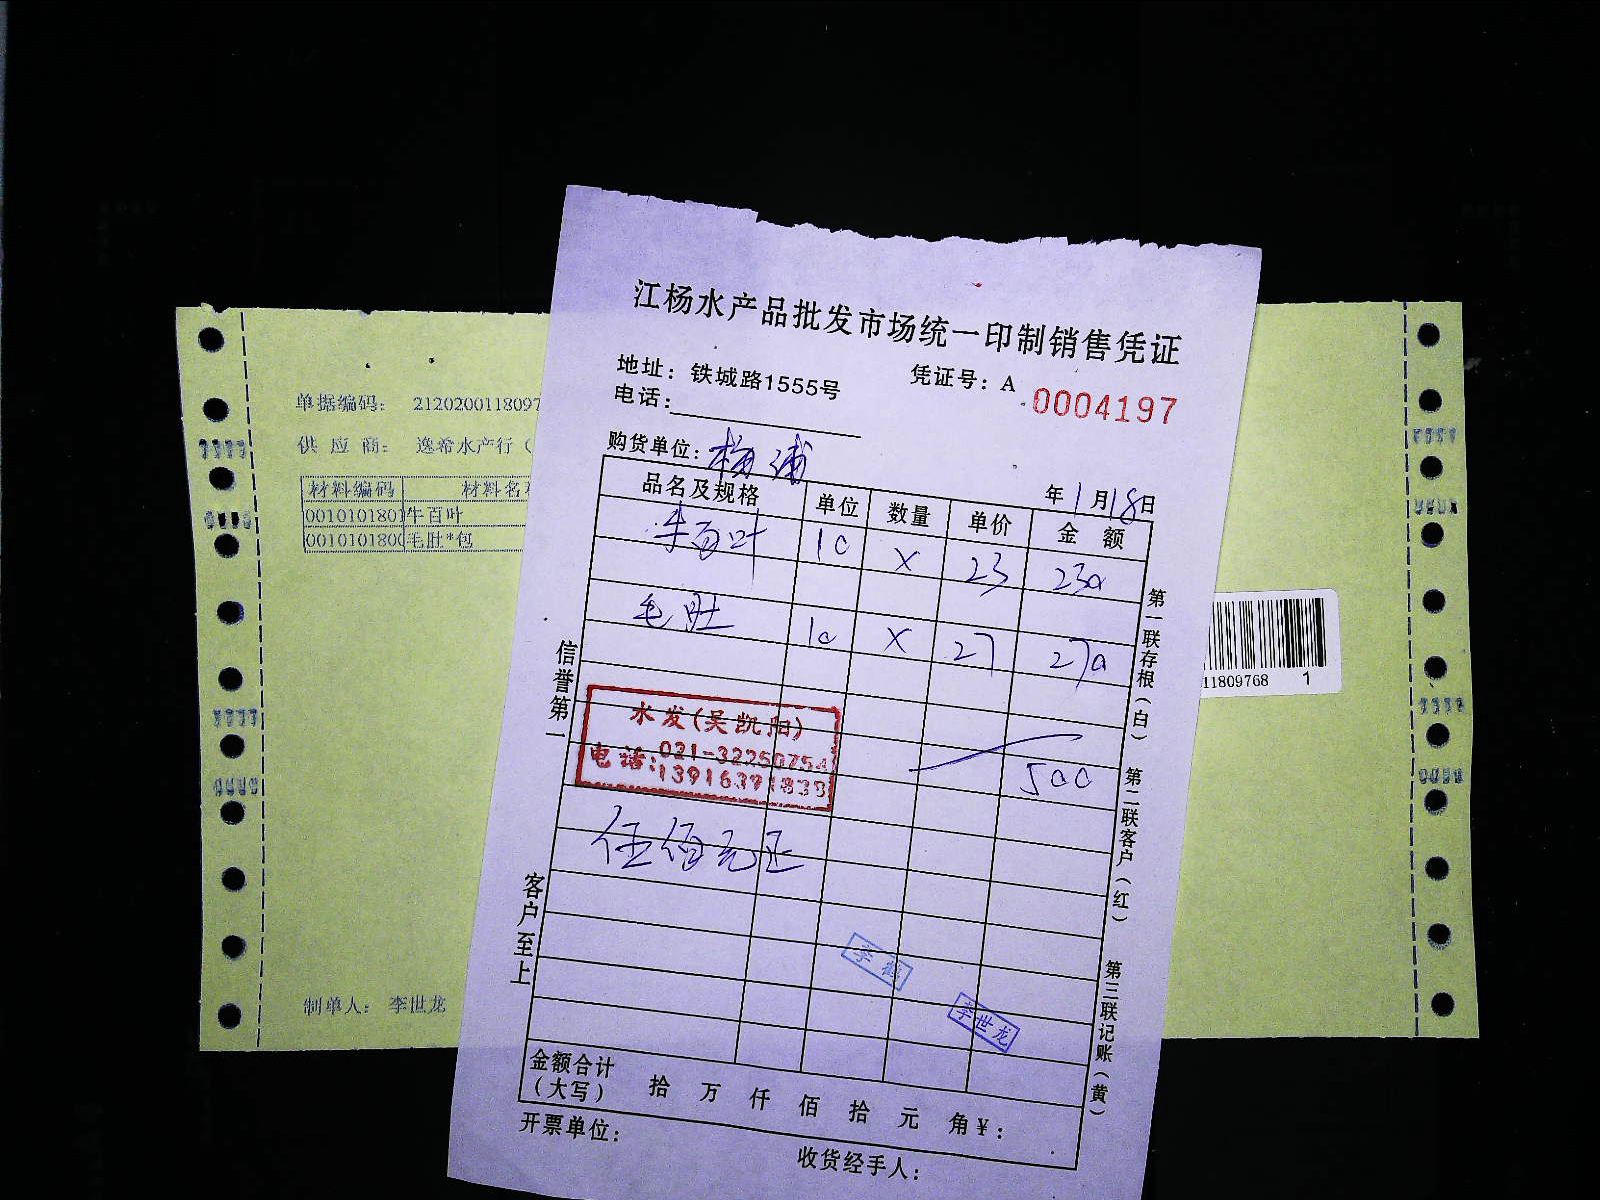 江杨水产品批发市场统一印制销售凭证
地址：铁城路1555号 凭证号：A 0004197
电话：
购货单位：梅浦
年1月18日
品名及规格 单位 数量 单价 金额
牛百叶 10 X 23 230
毛肚 10 X 27 270
500
水发(吴凯阳)
电话：021-32250754
13916371838
伍佰元正
李世龙
金额合计（大写） 拾 万 仟 佰 拾 元 角 ¥：
开票单位： 收货经手人：
信誉第一
客户至上
第一联存根（白） 第二联客户（红） 第三联记账（黄）
单据编码： 2120200118097
供应商： 逸希水产行（
材料编码 材料名
0010101801 牛百叶
0010101800 毛肚*包
制单人： 李世龙
11809768 1